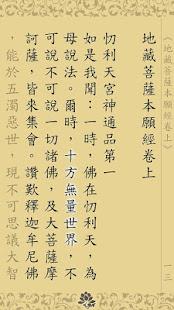 《地藏菩薩本願經卷上》
一三
地藏菩薩本願經卷上
忉利天宮神通品第一
如是我聞：一時，佛在忉利天，為
母說法。爾時，十方無量世界，不
可說不可說一切諸佛，及大菩薩摩
訶薩，皆來集會。讚歎釋迦牟尼佛
，能於五濁惡世，現不可思議大智